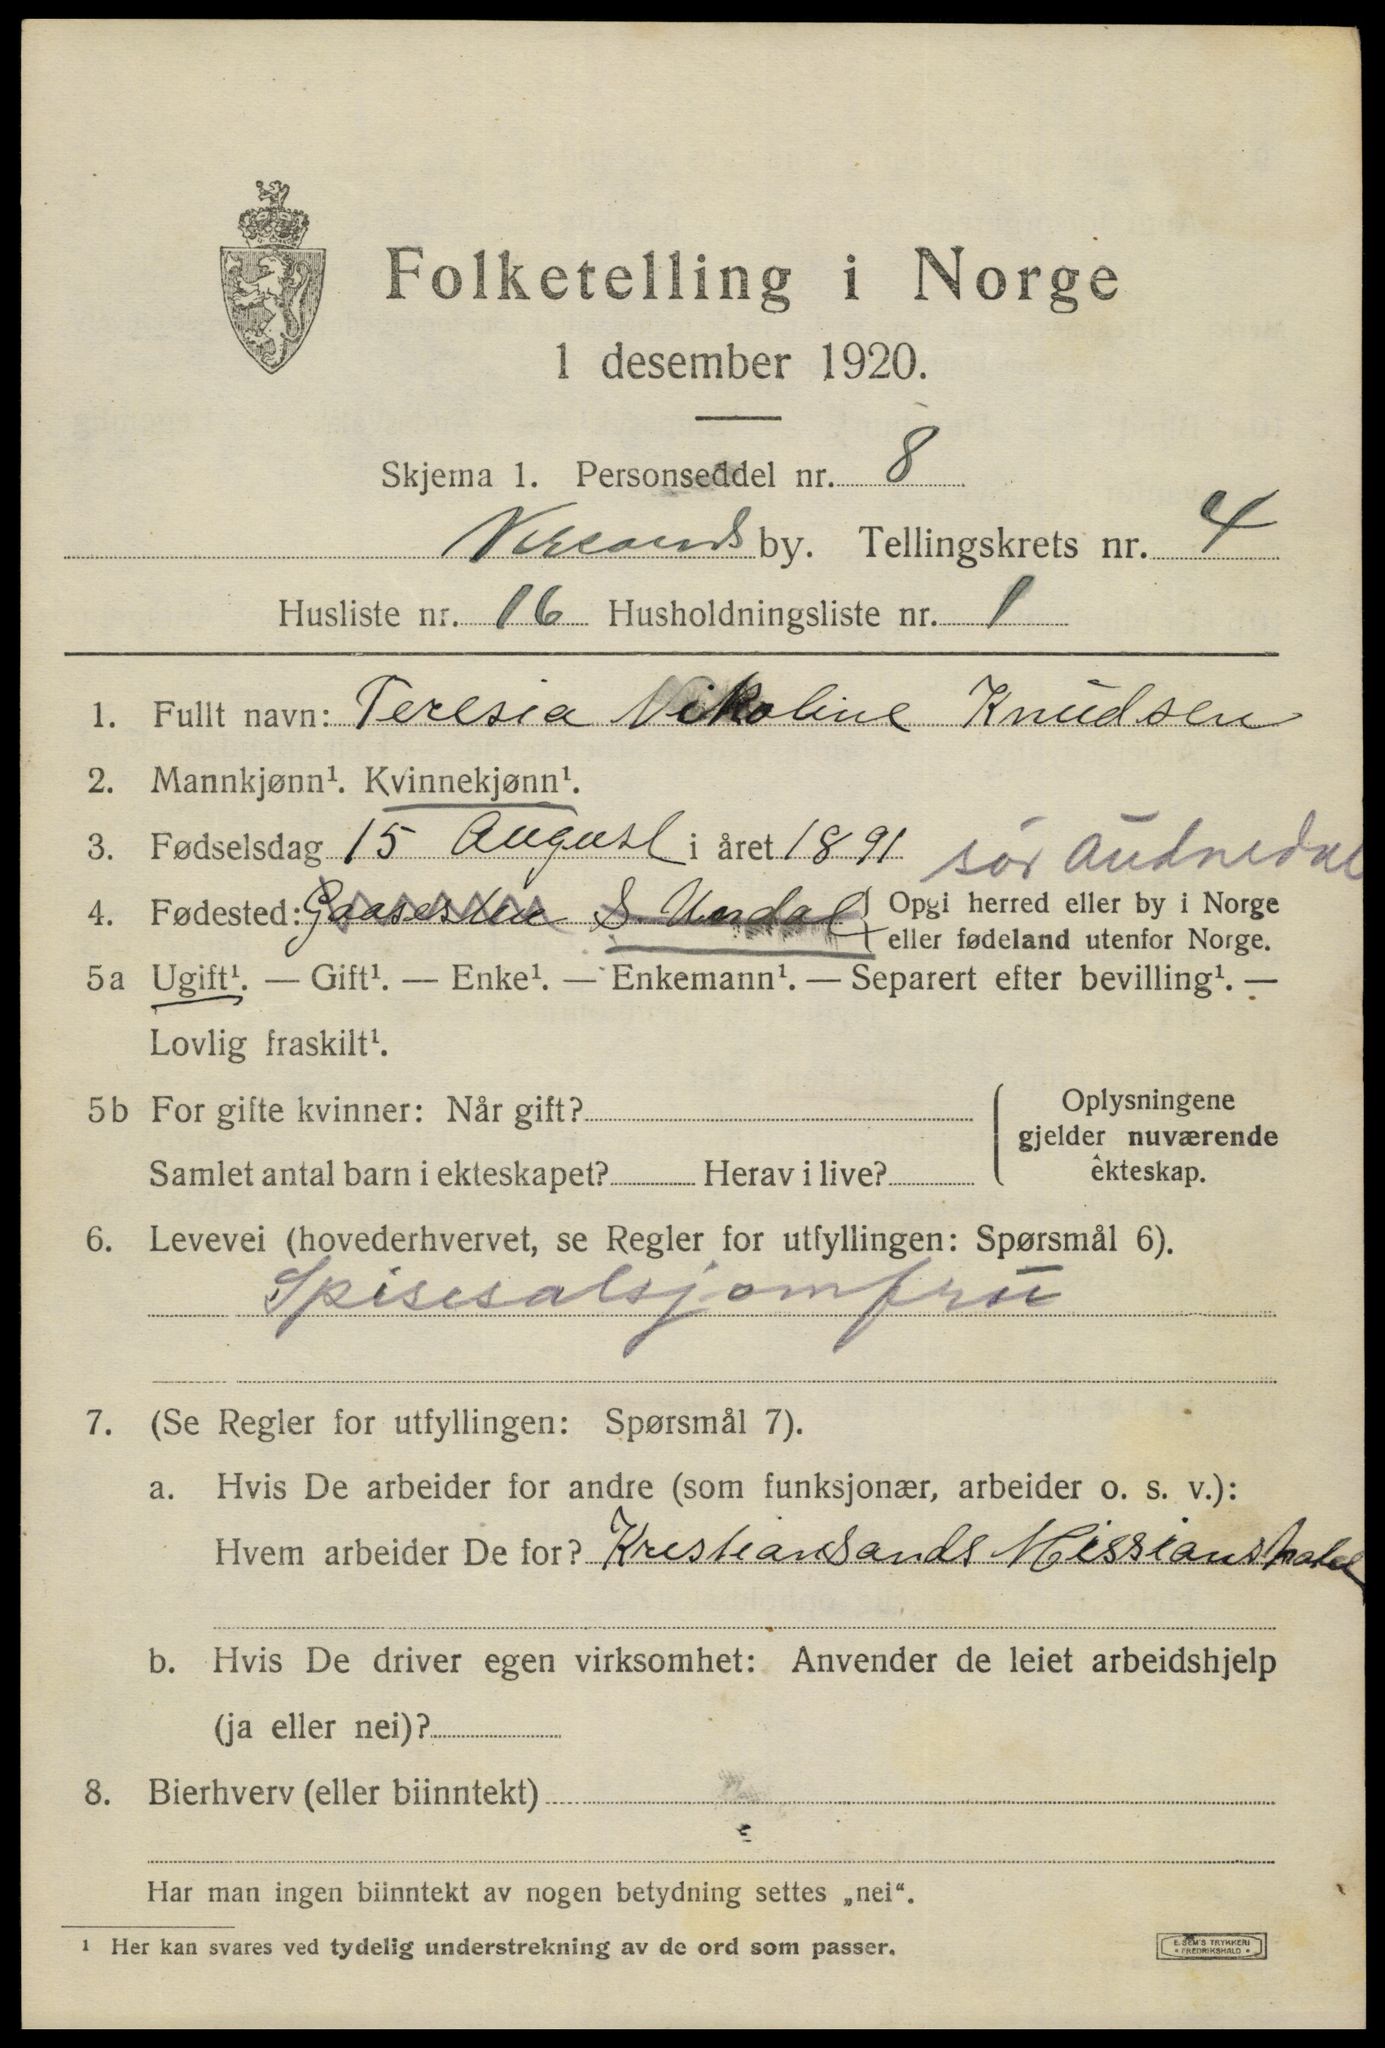 Folketelling i Norge
1 desember 1920.
Skjema 1. Personseddel nr. 8
by. Tellingskrets nr. 4
Husliste nr. 16 Husholdningsliste nr. 1
1. Fullt navn: Teresia Nikoline Knudsen
2. Mannkjønn¹. Kvinnekjønn¹.
3. Fødselsdag 15 August i året 1891 sör Audnedal
4. Fødested: S. Undal Opgi herred eller by i Norge
eller fødeland utenfor Norge.
5a Ugift¹. — Gift¹. — Enke¹. — Enkemann¹. — Separert efter bevilling¹. —
Lovlig fraskilt¹.
5b For gifte kvinner: Når gift?
Oplysningene
gjelder nuværende
ekteskap.
Samlet antal barn i ekteskapet? Herav i live?
6. Levevei (hovederhvervet, se Regler for utfyllingen: Spørsmål 6).
Spisesalsjomfru
7. (Se Regler for utfyllingen: Spørsmål 7).
a. Hvis De arbeider for andre (som funksjonær, arbeider o. s. v.):
Hvem arbeider De for? Kristiansands Missionshotel
b. Hvis De driver egen virksomhet: Anvender de leiet arbeidshjelp
(ja eller nei)?
8. Bierhverv (eller biinntekt)
Har man ingen biinntekt av nogen betydning settes „nei“.
¹ Her kan svares ved tydelig understrekning av de ord som passer.
E. SEM'S TRYKKERI
• FREDRIKSHALD •